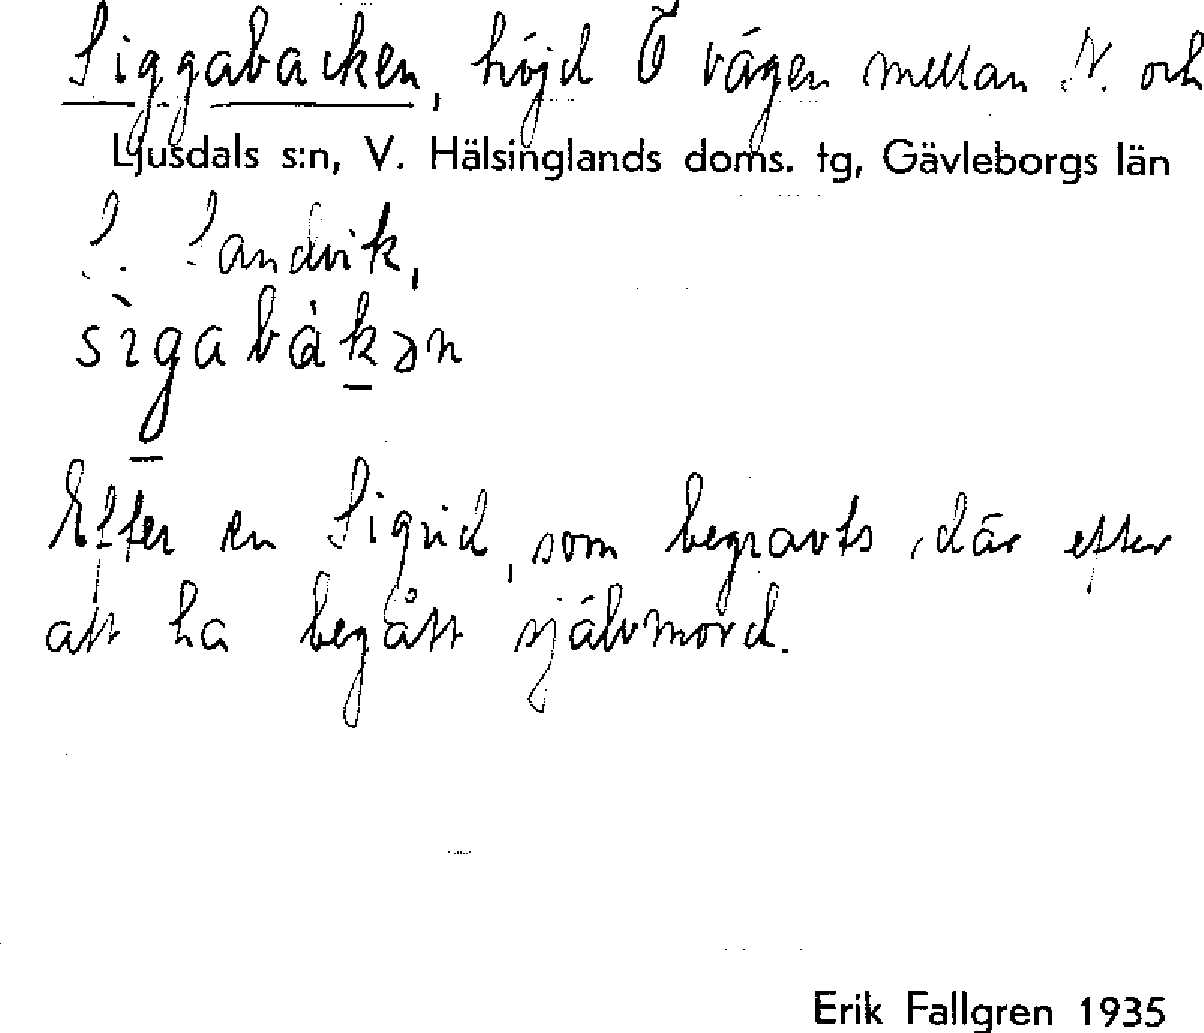 Siggabacken, höjd Ö vägen mellan N. och
Ljusdals s:n, V. Hälsinglands doms. tg, Gävleborgs län
S. Sandvik,
sìgabàkən
Efter en Sigrid, som begravts där efter
att ha begått självmord.
Erik Fallgren 1935